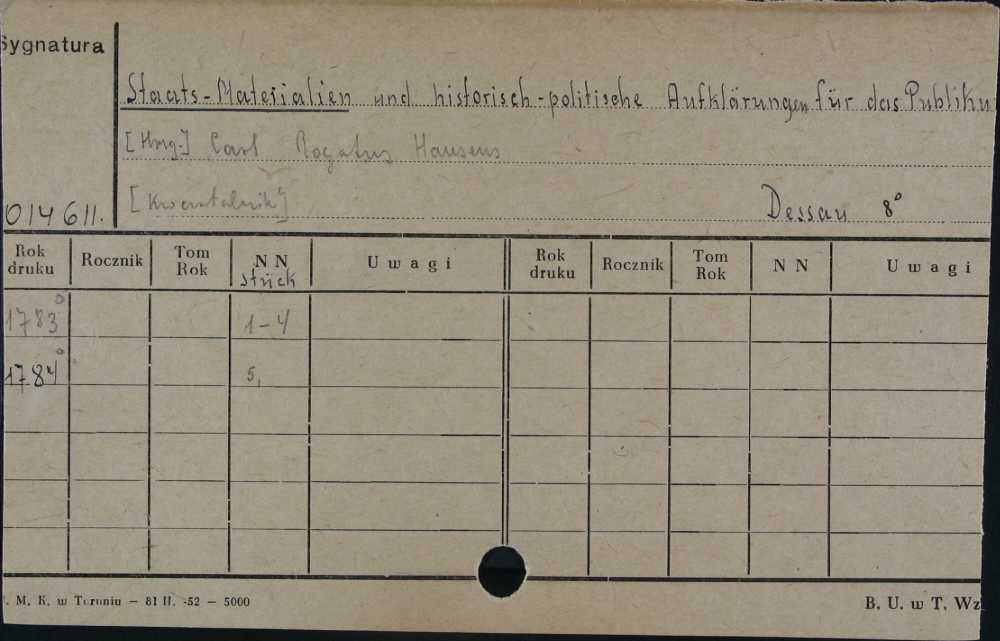 Sygnatura
Staats-Materialien und historisch-politische Aufklärungen für das Publiku
[Hrsg.] Carl Rogatus Hausens
[Kwartalnik]
014611. Dessau 8°
Rok druku Rocznik Tom Rok NN Stück Uwagi Rok druku Rocznik Tom Rok NN Uwagi
1783 1-4
1784 5,
. M. K. w Toruniu — 81 II. -52 — 5000 B. U. w T. Wz